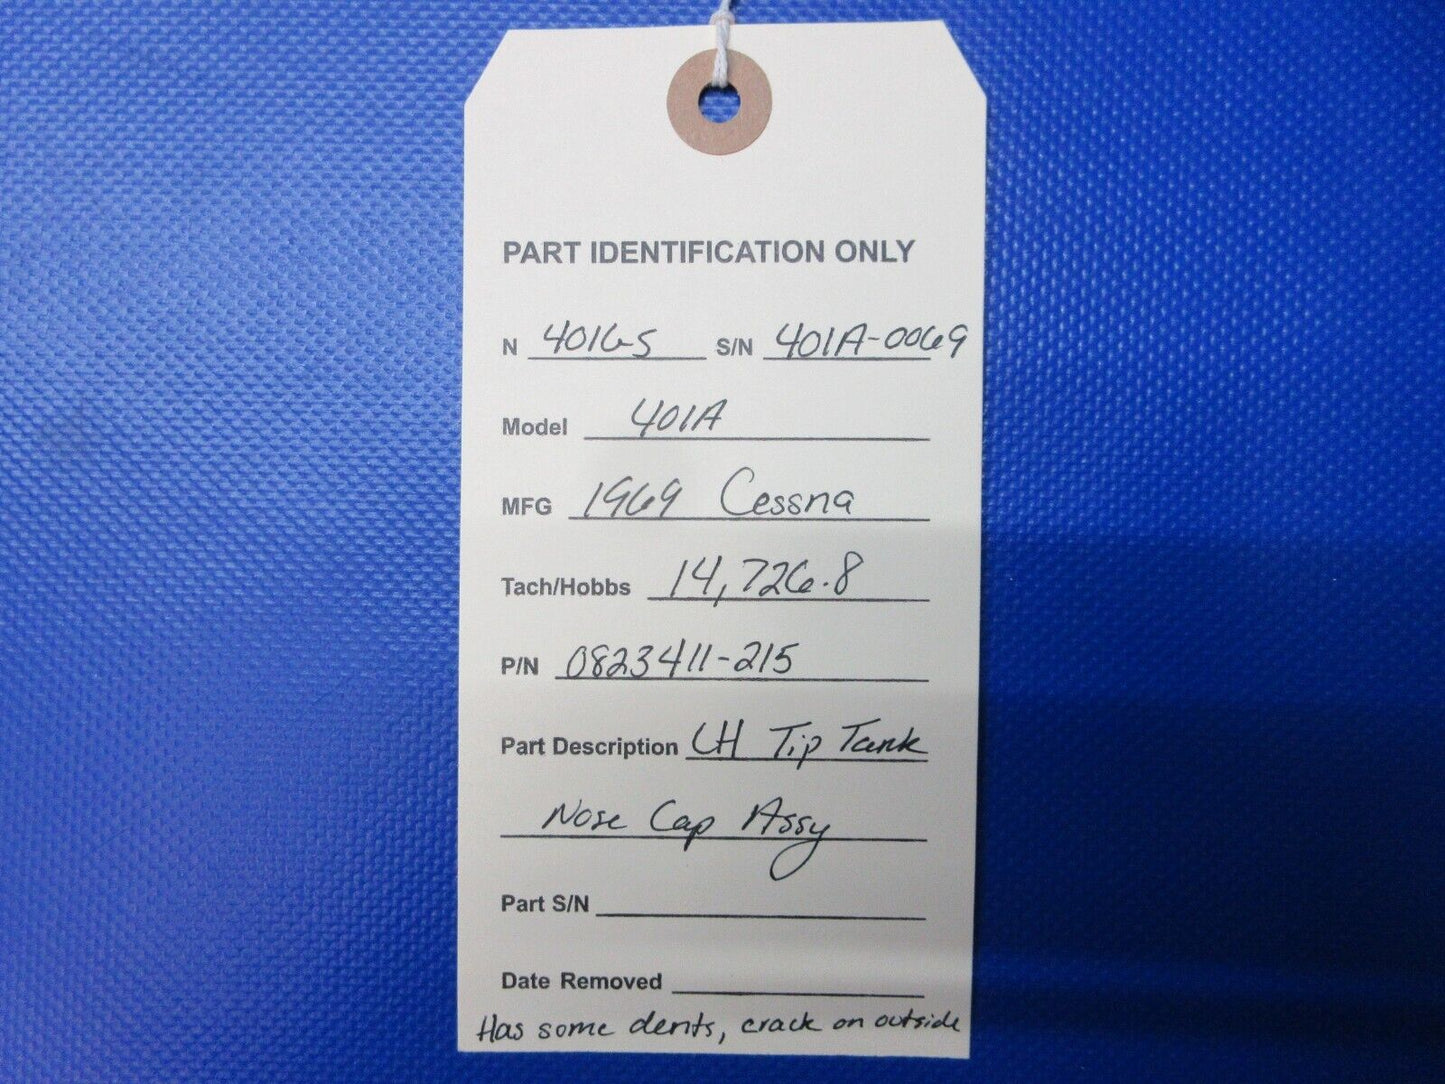 PART IDENTIFICATION ONLY
N 401GS S/N 401A-0069
Model 401A
MFG 1969 Cessna
Tach/Hobbs 14,726.8
P/N 0823411-215
Part Description LH Tip Tank
Nose Cap Assy
Part S/N
Date Removed
Has some dents, crack on outside